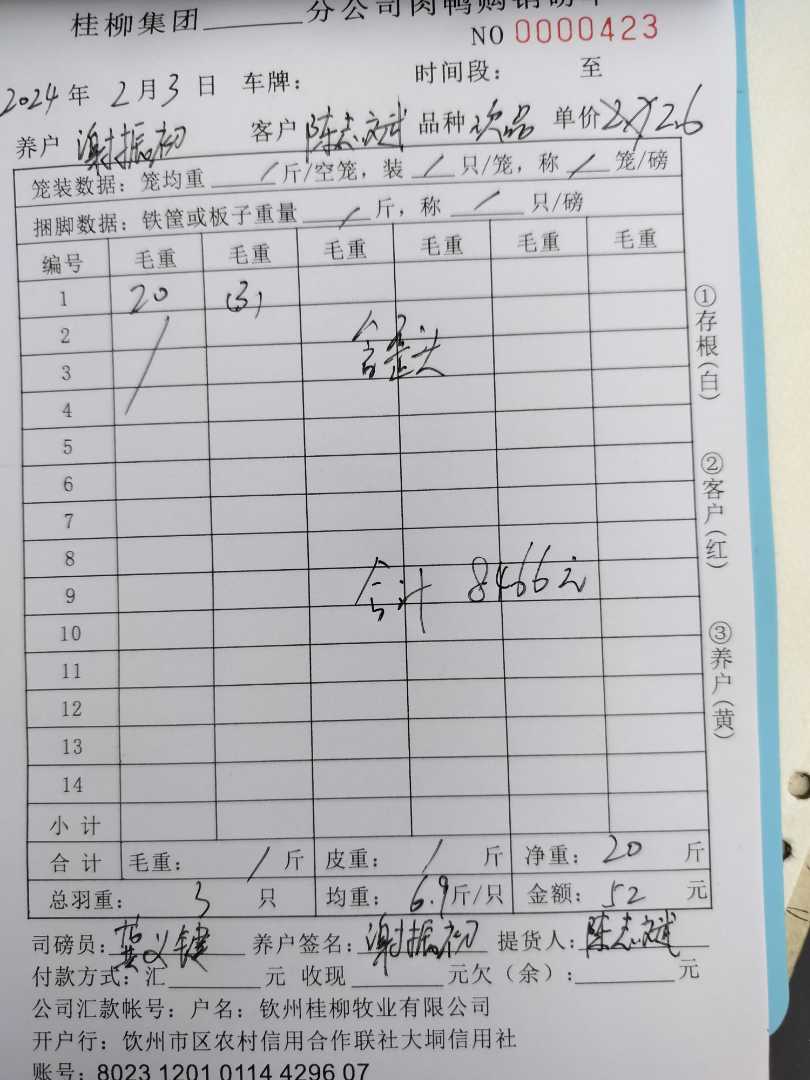 桂柳集团______分公司肉鸭购销磅单
NO 0000423
2024年 2月3日 车牌: 时间段: 至
养户 谢振初 客户 陈志斌 品种 次品 单价 2.6
笼装数据: 笼均重 / 斤/空笼, 装 / 只/笼, 称 / 笼/磅
捆脚数据: 铁筐或板子重量 / 斤, 称 / 只/磅
编号 毛重 毛重 毛重 毛重 毛重 毛重
1 20 (3)
2
3 含歪头
4
5
6
7
8
9 合计 8466元
10
11
12
13
14
小计
合计 毛重: / 斤 皮重: / 斤 净重: 20 斤
总羽重: 3 只 均重: 6.9斤/只 金额: 52 元
司磅员: 义键 养户签名: 谢振初 提货人: 陈志斌
付款方式: 汇______元 收现______元欠(余):______元
公司汇款帐号: 户名: 钦州桂柳牧业有限公司
开户行: 饮州市区农村信用合作联社大垌信用社
账号: 8023 1201 0114 4296 07
①存根(白)
②客户(红)
③养户(黄)